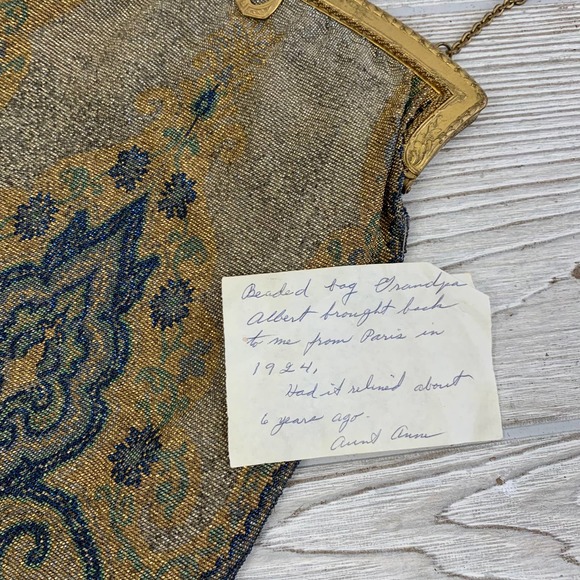 Beaded bag Grandpa
Albert brought back
to me from Paris in
1924,
Had it relined about
6 years ago.
Aunt Anne